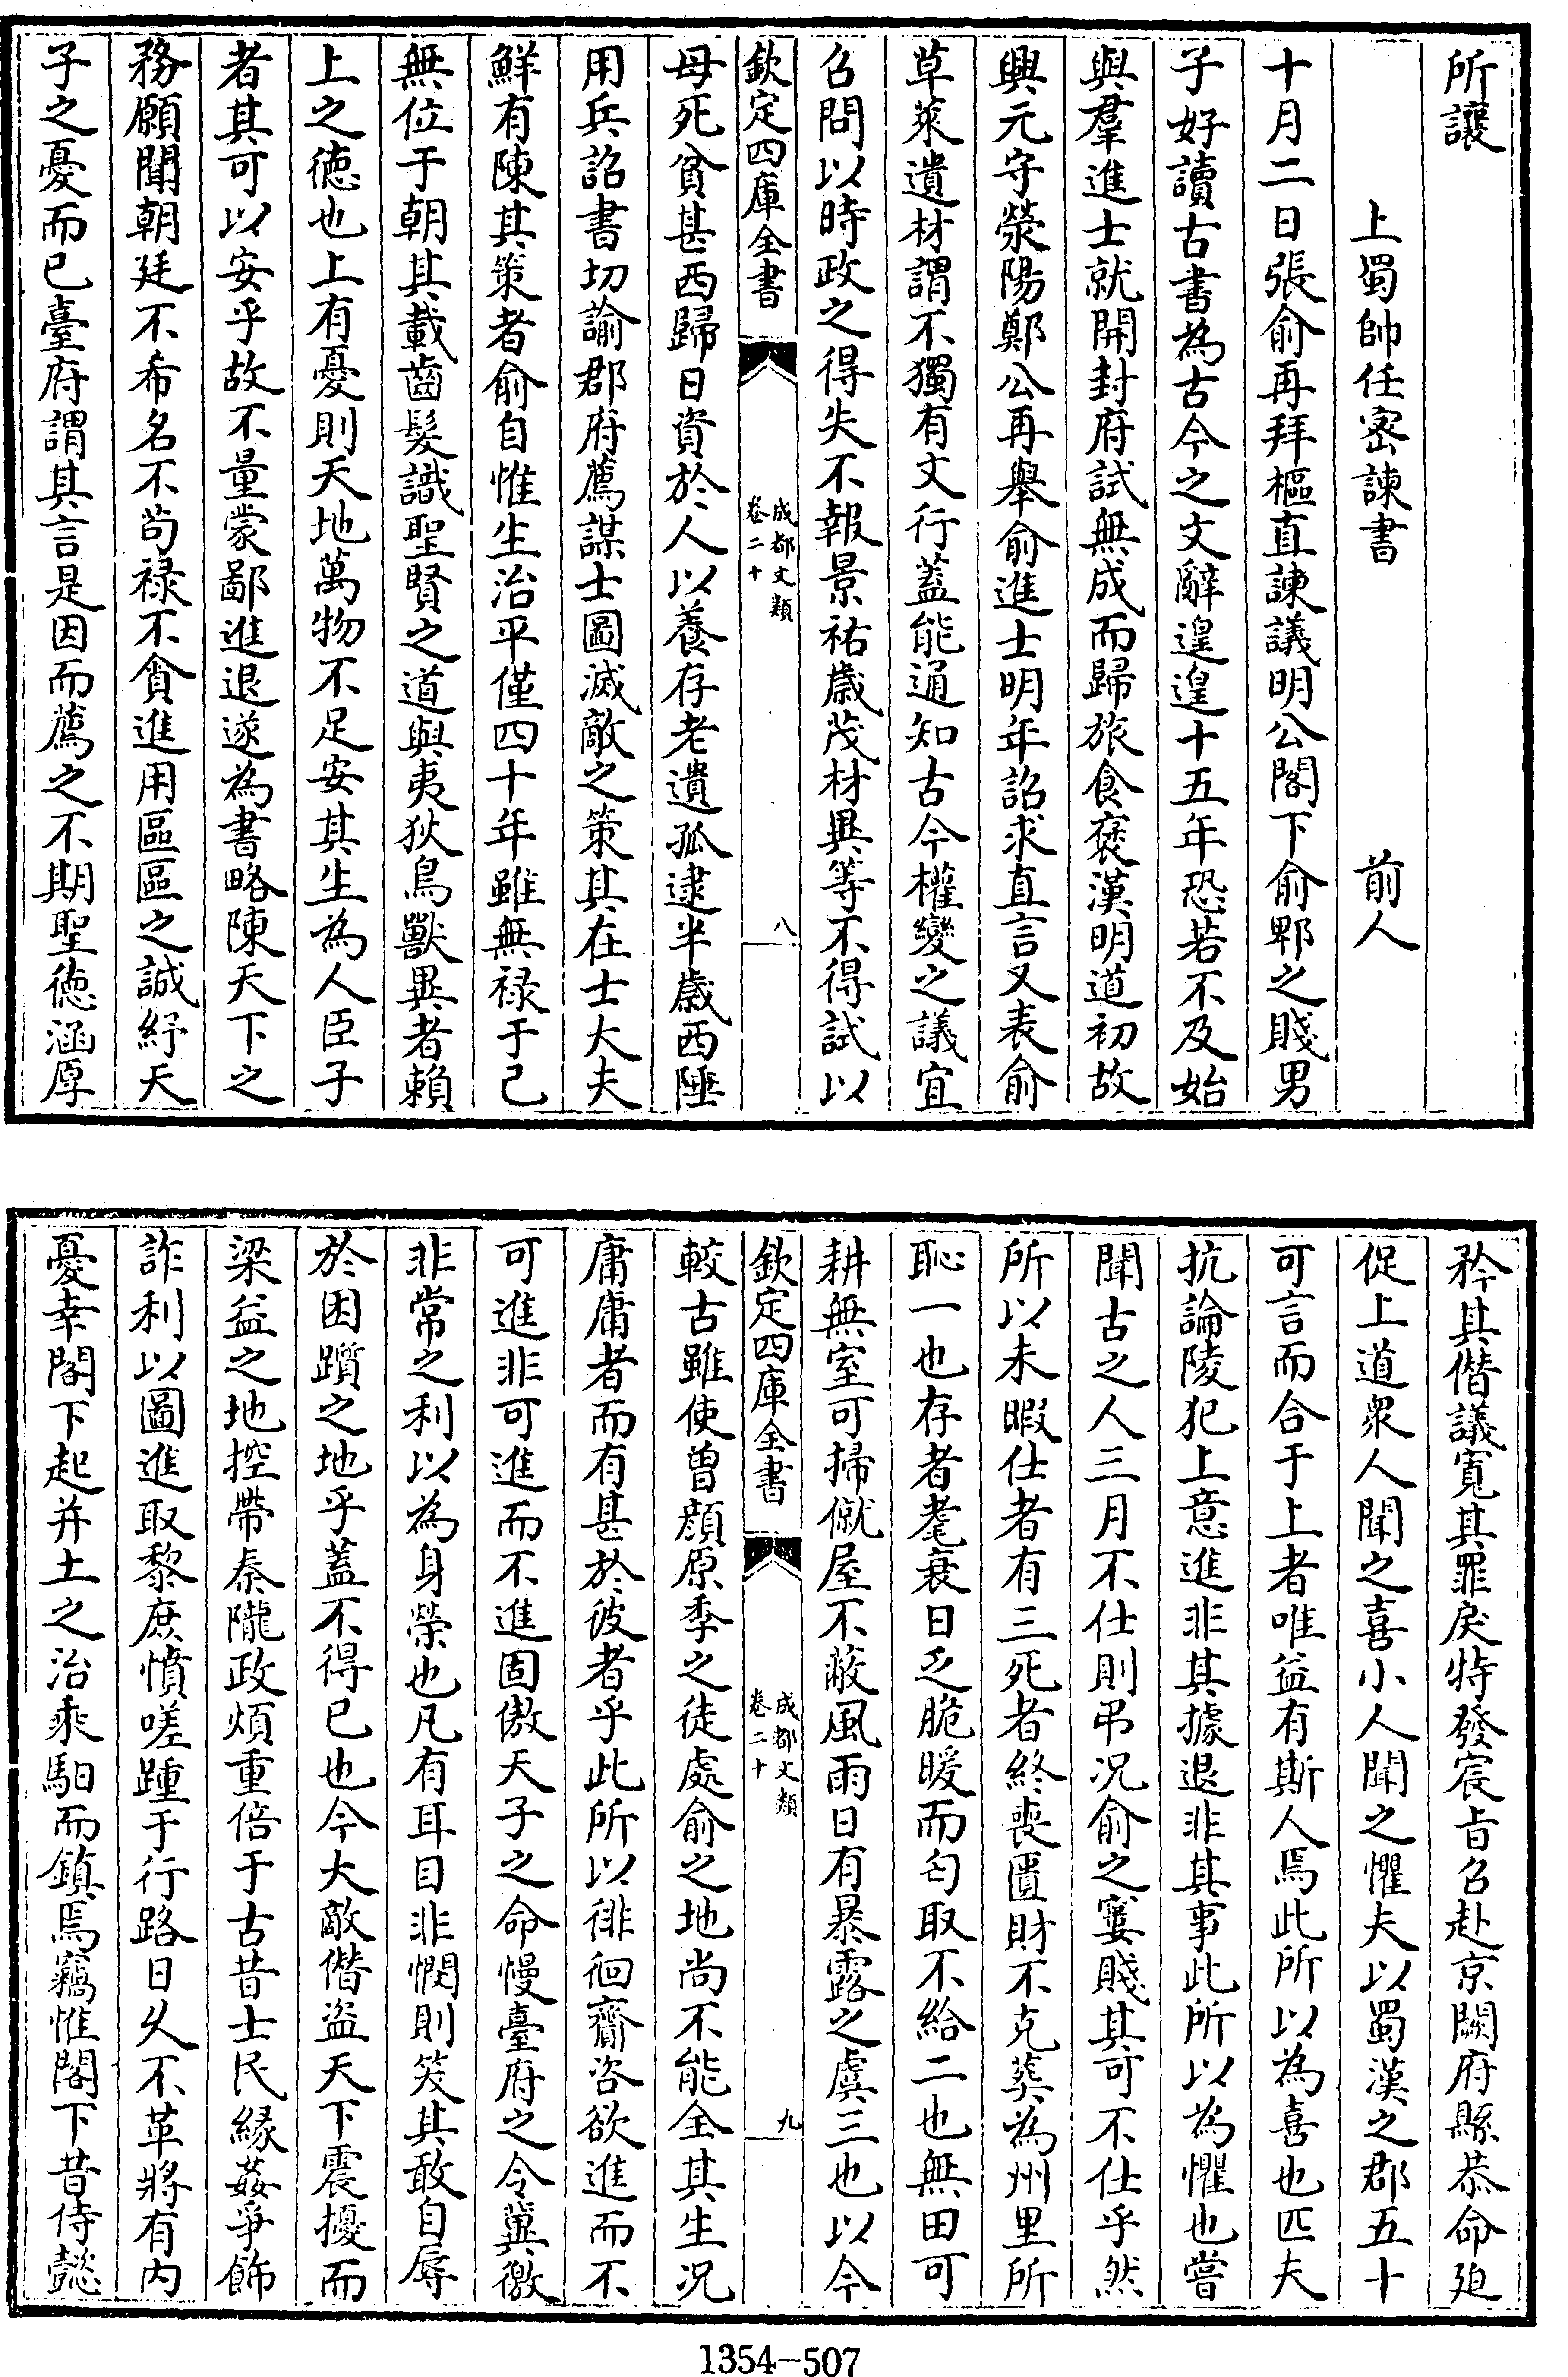 所讓
上蜀帥任密諫書　前人
十月二日張俞再拜樞直諫議明公閣下俞郫之賤男
子好讀古書為古今之文辭遑遑十五年恐若不及始
與羣進士就開封府試無成而歸旅食褒漢明道初故
興元守滎陽鄭公再舉俞進士明年詔求直言又表俞
草萊遺材謂不獨有文行蓋能通知古今權變之議宜
召問以時政之得失不報景祐歲茂材異等不得試以
欽定四庫全書
成都文類
卷二十
八
母死貧甚西歸日資於人以養存老遺孤逮半歲西陲
用兵詔書切諭郡府薦謀士圖滅敵之策其在士大夫
鮮有陳其策者俞自惟生治平僅四十年雖無祿于已
無位于朝其載齒髮識聖賢之道與夷狄鳥獸異者賴
上之德也上有憂則天地萬物不足安其生為人臣子
者其可以安乎故不量蒙鄙進退遂為書略陳天下之
務願聞朝廷不希名不茍祿不貪進用區區之誠紓天
子之憂而已臺府謂其言是因而薦之不期聖德涵厚
矜其僭議寛其罪戾特發宸㫖召赴京闕府縣恭命廹
促上道衆人聞之喜小人聞之懼夫以蜀漢之郡五十
可言而合于上者唯益有斯人焉此所以為喜也匹夫
抗論陵犯上意進非其據退非其事此所以為懼也嘗
聞古之人三月不仕則弔况俞之窶賤其可不仕乎然
所以未暇仕者有三死者終喪匱財不克葬為州里所
恥一也存者耄衰日乏脆暖而匄取不給二也無田可
耕無室可掃僦屋不蔽風雨日有暴露之虞三也以今
欽定四庫全書
成都文類
卷二十
九
較古雖使曾顔原季之徒處俞之地尚不能全其生况
庸庸者而有甚於彼者乎此所以徘徊齎咨欲進而不
可進非可進而不進固傲天子之命慢臺府之令冀徼
非常之利以為身榮也凡有耳目非憫則笑其敢自辱
於困躓之地乎蓋不得已也今大敵僭盜天下震擾而
梁益之地控帶秦隴政煩重倍于古昔士民緣姦爭飾
詐利以圖進取黎庶憤嗟踵于行路日久不革將有内
憂幸閣下起并土之治乘馹而鎮焉竊惟閣下昔侍懿
1354-507